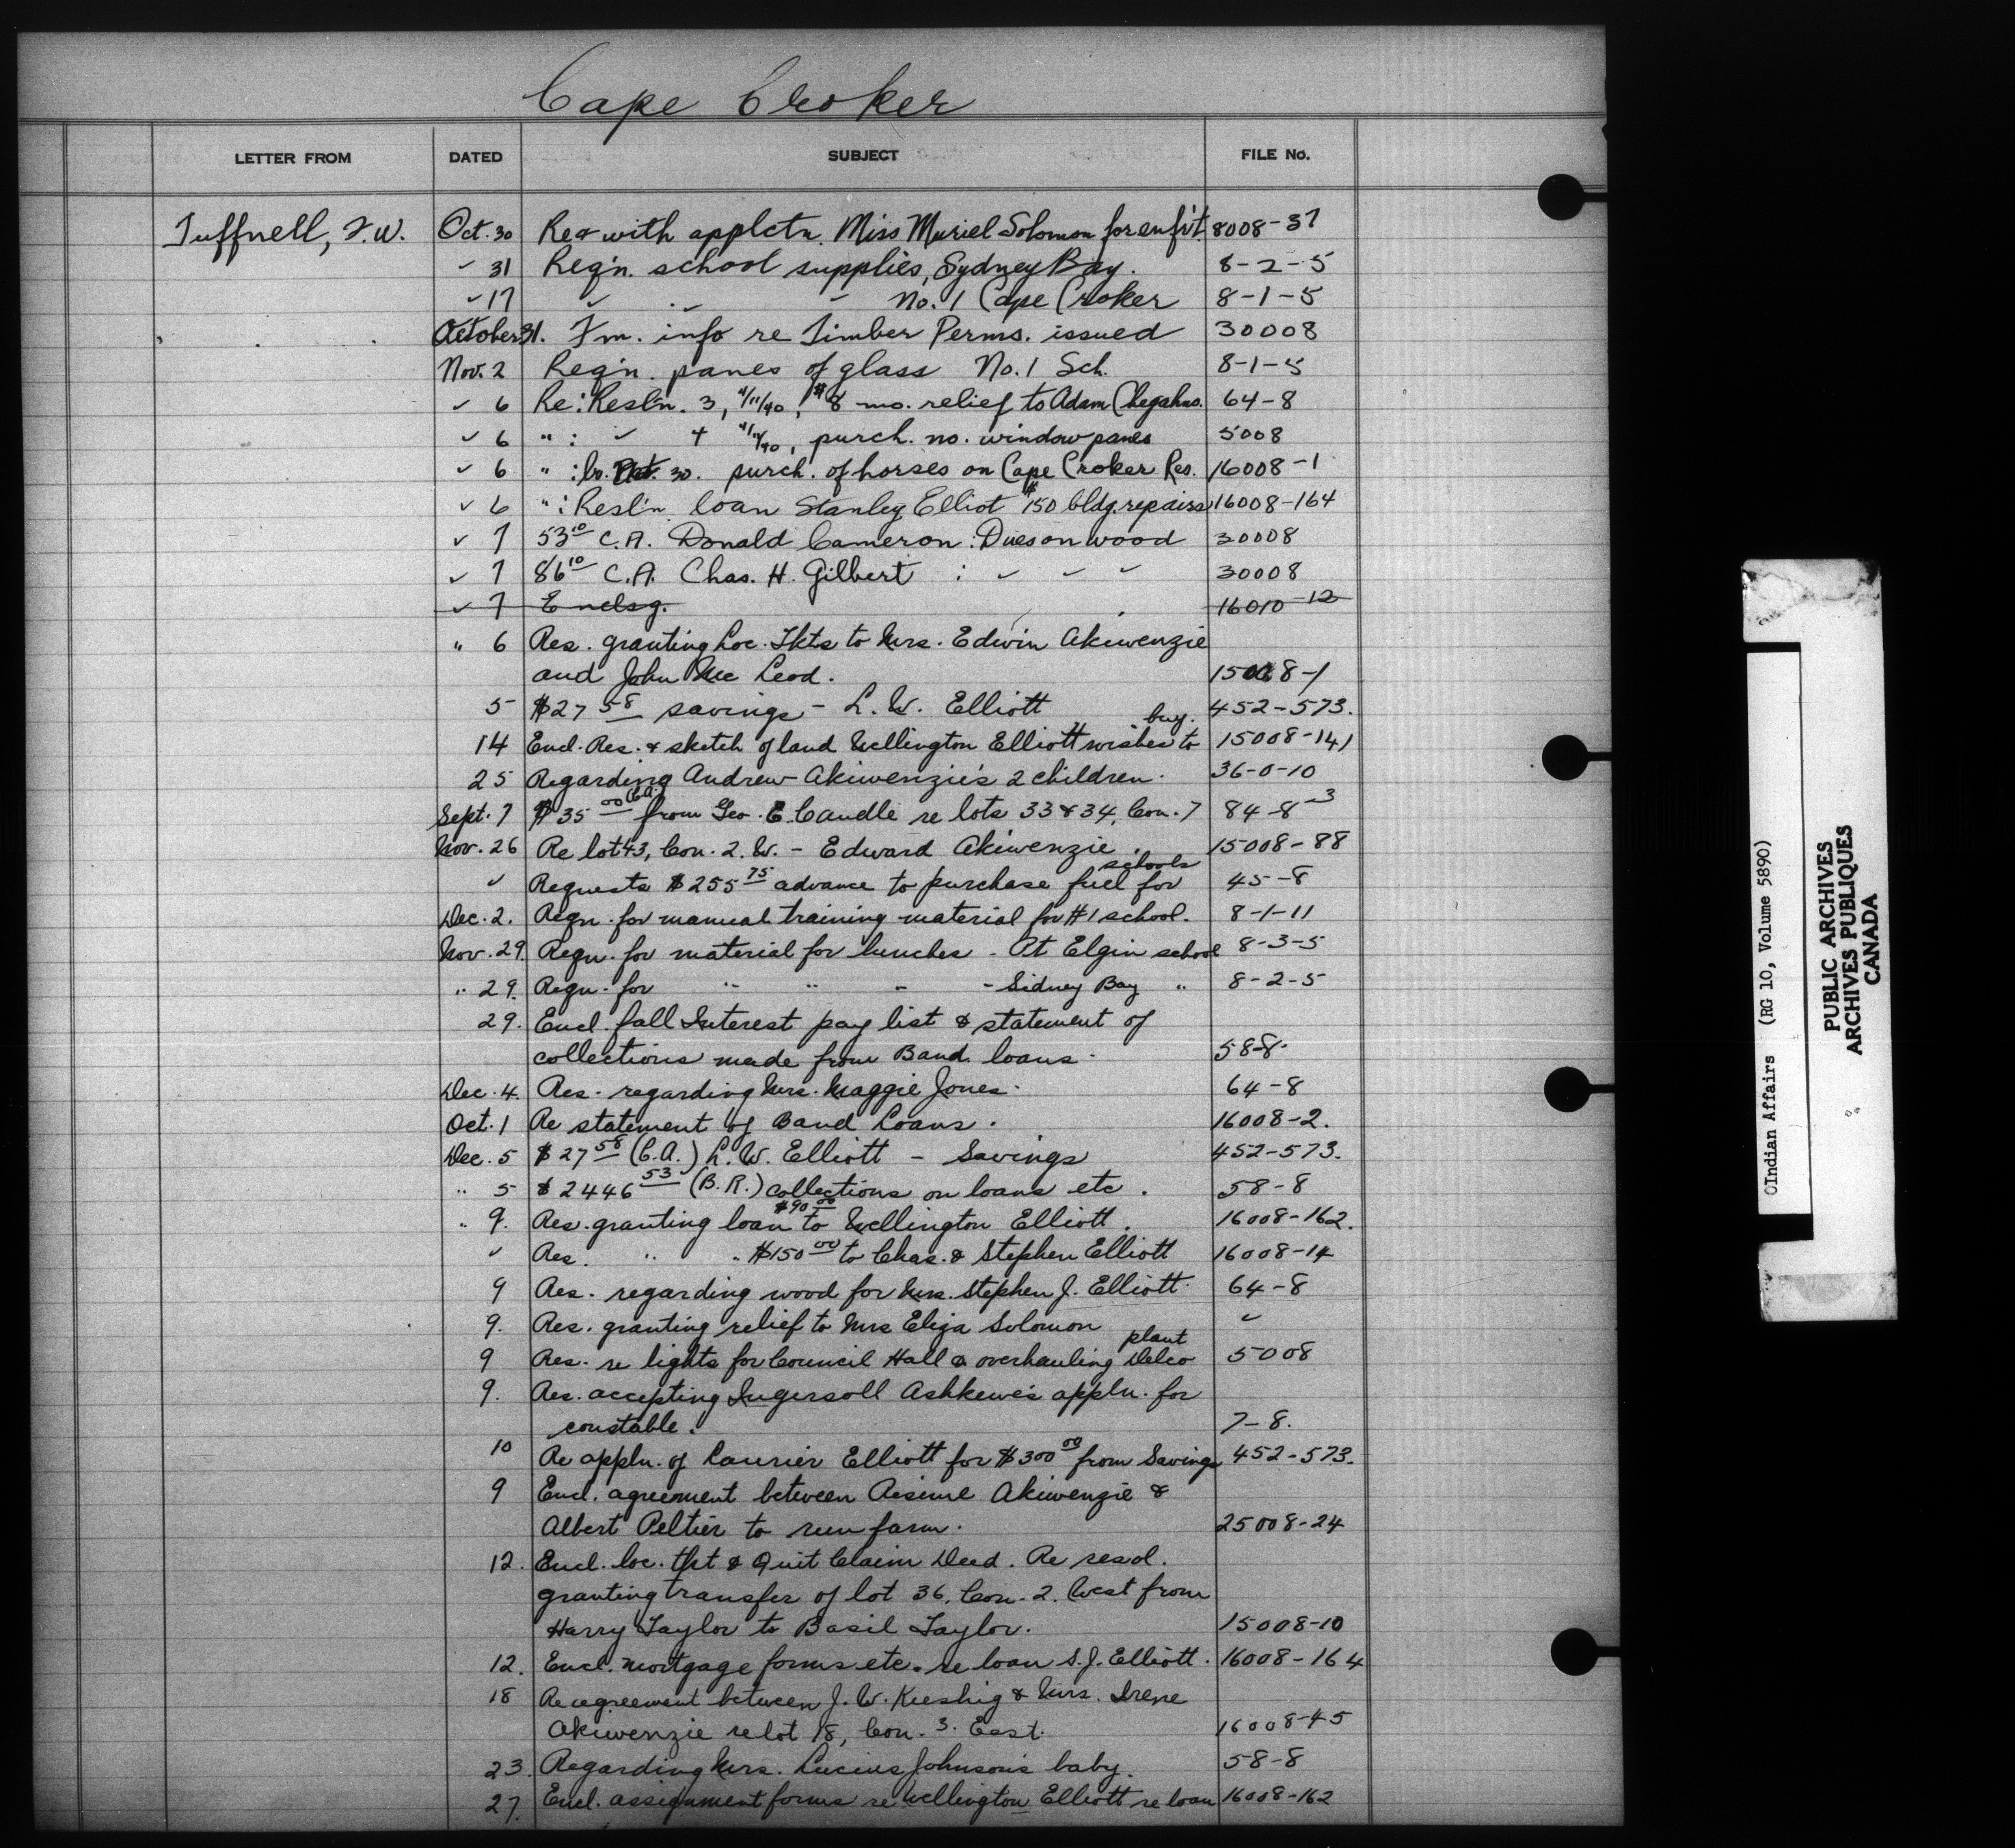 Cape Croker
LETTER FROM DATED SUBJECT FILE No.
Tuffnell, F.W. Oct. 30 Re & with applctn. Miss Muriel Solomon for enf't. 8008-37
✓ 31 Req'n. school supplies, Sydney Bay. 8-2-5
✓ 17 ✓ ✓ ✓ No. 1 Cape Croker 8-1-5
October 31. Fm. info re Timber Perms. issued 30008
Nov. 2 Req'n. panes of glass No. 1 Sch. 8-1-5
✓ 6 Re: Resl'n. 3, 4/11/40, $8 mo. relief to Adam Chegahno. 64-8
✓ 6 " : ✓ 4 4/11/40, purch. no. window panes 5008
✓ 6 " : lr. Oct. 30. purch. of horses on Cape Croker Res. 16008-1
✓ 6 " : Resl'n. loan Stanley Elliot $150 bldg. repairs 16008-164
✓ 7 53 10 C.A. Donald Cameron: Dues on wood 30008
✓ 7 86 10 C.A. Chas. H. Gilbert : ✓ ✓ ✓ 30008
✓ 7 Enclsg. 16010-12
" 6 Res. granting Loc. Tkts to Mrs. Edwin Akiwenzie
and John Mc Leod. 15008-1
5 $27 58 savings - L. W. Elliott 452-573.
14 Encl. Res. & sketch of land Wellington Elliott wishes to buy. 15008-141
25 Regarding Andrew Akiwenzie's 2 children. 36-0-10
Sept. 7 $35 00 (C.A.) from Geo. E. Caudle re lots 33 & 34, Con. 7 84-8-3
Nov. 26 Re lot 43, Con. 2. W. - Edward Akiwenzie. 15008-88
✓ Requests $255 75 advance to purchase fuel for schools 45-8
Dec. 2. Reqn. for manual training material for #1 school. 8-1-11
Nov. 29. Reqn. for material for lunches - Pt Elgin school 8-3-5
" 29. Reqn. for " " " - Sidney Bay " 8-2-5
29. Encl. fall Interest pay list & statement of
collections made from Band loans. 58-8.
Dec. 4. Res. regarding Mrs. Maggie Jones. 64-8
Oct. 1 Re statement of Band Loans. 16008-2.
Dec. 5 $27 58 (C.A.) L. W. Elliott - Savings 452-573.
" 5 $2446 53 (B.R.) collections on loans etc. 58-8
" 9. Res. granting loan $90 00 to Wellington Elliott. 16008-162.
✓ Res. " " $150 00 to Chas. & Stephen Elliott 16008-14
9 Res. regarding wood for Mrs. Stephen J. Elliott. 64-8
9. Res. granting relief to Mrs Eliza Solomon ✓
9 Res. re lights for Council Hall & overhauling Delco plant 5008
9. Res. accepting Ingersoll Ashkewe's appln. for
constable. 7-8.
10 Re appln. of Laurier Elliott for $300 00 from Savings 452-573.
9 Encl. agreement between Akiwenzie &
Albert Peltier to run farm. 25008-24
12. Encl. loc. tkt & Quit Claim Deed. Re resol.
granting transfer of lot 36, Con. 2. West from
Harry Taylor to Basil Taylor. 15008-10
12. Encl. mortgage forms etc. re loan S.J. Elliott. 16008-164
18 Re agreement between J. W. Keeshig & Mrs. Irene
Akiwenzie re lot 18, Con. 3. East. 16008-45
23. Regarding Mrs. Lucius Johnson's baby. 58-8
27. Encl. assignment forms re Wellington Elliott re loan 16008-162
Indian Affairs (RG 10, Volume 5890)
PUBLIC ARCHIVES
ARCHIVES PUBLIQUES
CANADA